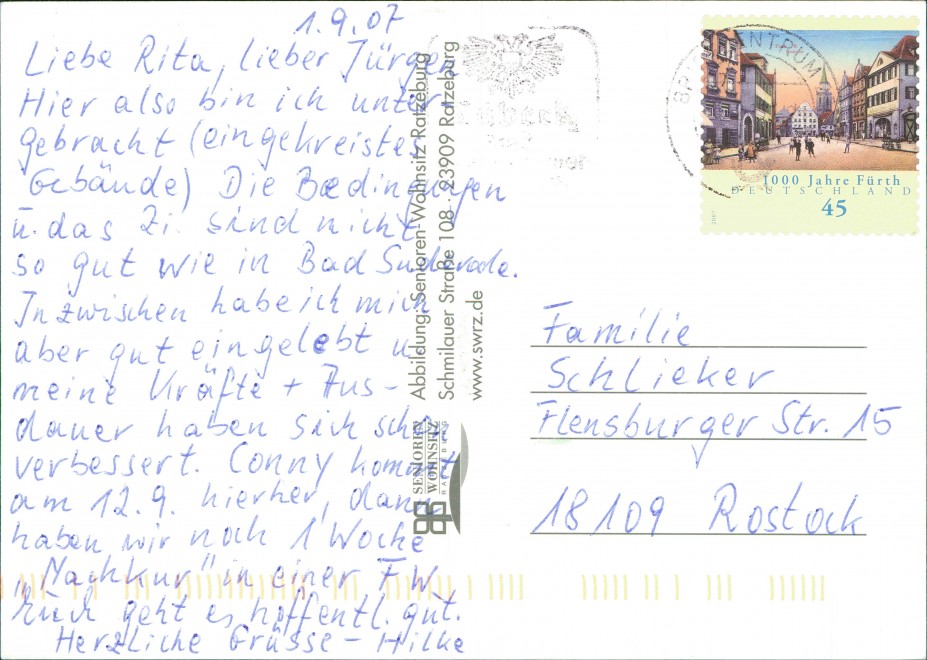 1.9.07
Liebe Rita, lieber Jürgen
Hier also bin ich unter
gebracht (eingekreistes
Gebände) Die Bedingungen
u. das Zi. sind nicht
so gut wie in Bad Suderode.
Inzwischen habe ich mich
aber gut eingelebt u
meine Kräfte + Aus-
dauer haben sich schon
verbessert. Conny kommt
am 12.9. hierher, dann
haben wir noch 1 Woche
„Nachkur" in einer FW.
Euch geht es hoffentl. gut.
Herzliche Grüsse - Hilke
Abbildung: Senioren-Wohnsitz Ratzeburg
Schmilauer Straße 108 · 23909 Ratzeburg
www.swrz.de
SENIOREN
WOHNSITZ
RATZEBURG
1000 Jahre Fürth
DEUTSCHLAND
45
2007
Familie
Schlieker
Flensburger Str. 15
18109 Rostock